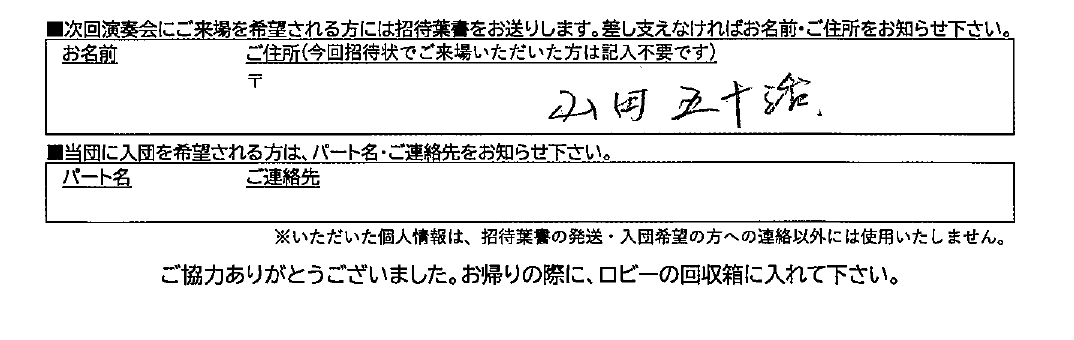 ■次回演奏会にご来場を希望される方には招待葉書をお送りします。差し支えなければお名前・ご住所をお知らせ下さい。
お名前 ご住所(今回招待状でご来場いただいた方は記入不要です)
〒
山田 五十治.
■当団に入団を希望される方は、パート名・ご連絡先をお知らせ下さい。
パート名 ご連絡先
※いただいた個人情報は、招待葉書の発送・入団希望の方への連絡以外には使用いたしません。
ご協力ありがとうございました。お帰りの際に、ロビーの回収箱に入れて下さい。